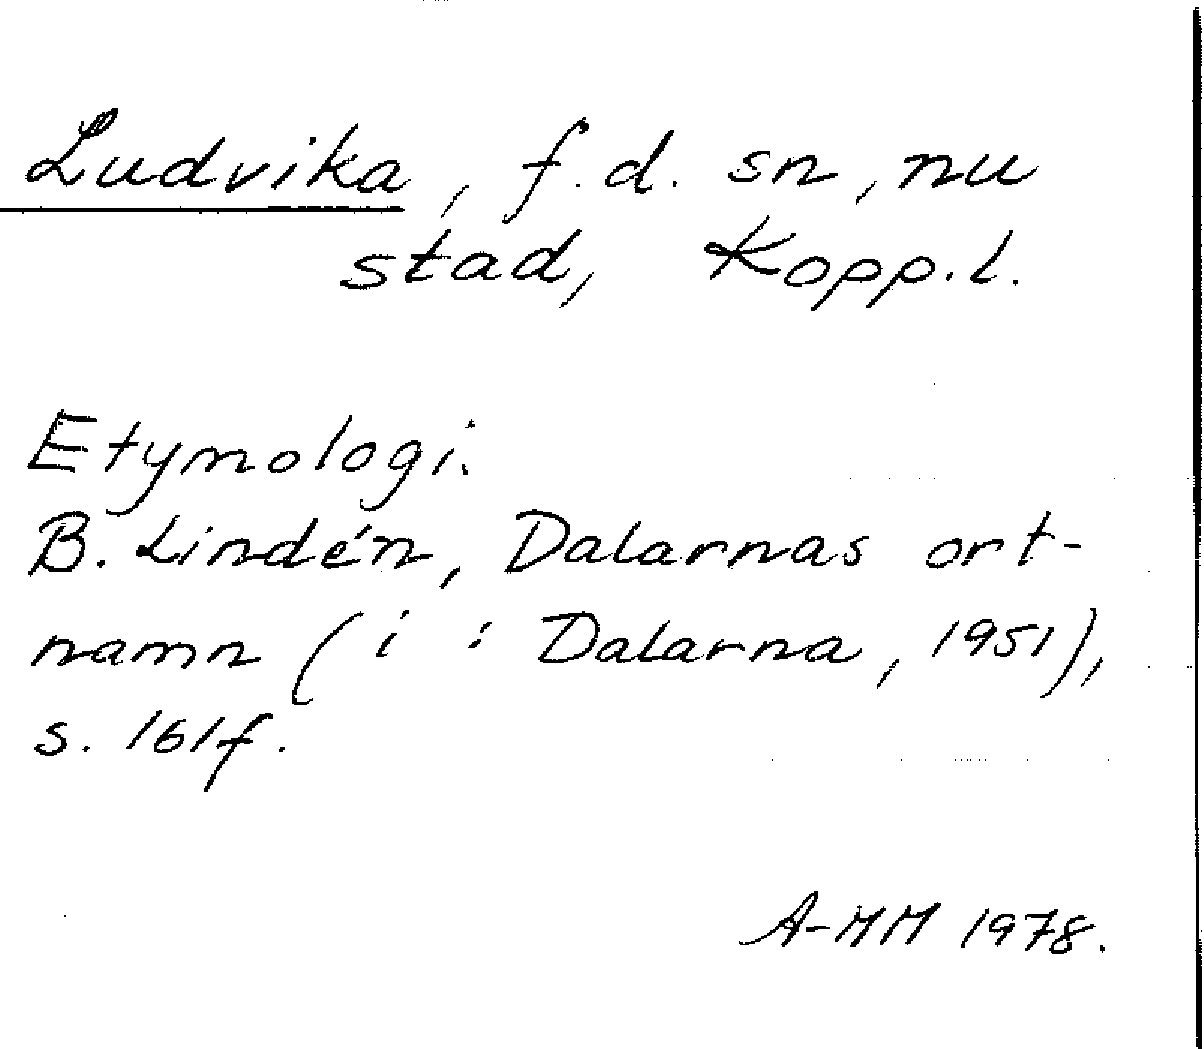 Ludvika, f.d. sn, nu
stad, Kopp.l.
Etymologi:
B. Lindén, Dalarnas ort-
namn (i : Dalarna, 1951),
s. 161f.
A-MM 1978.